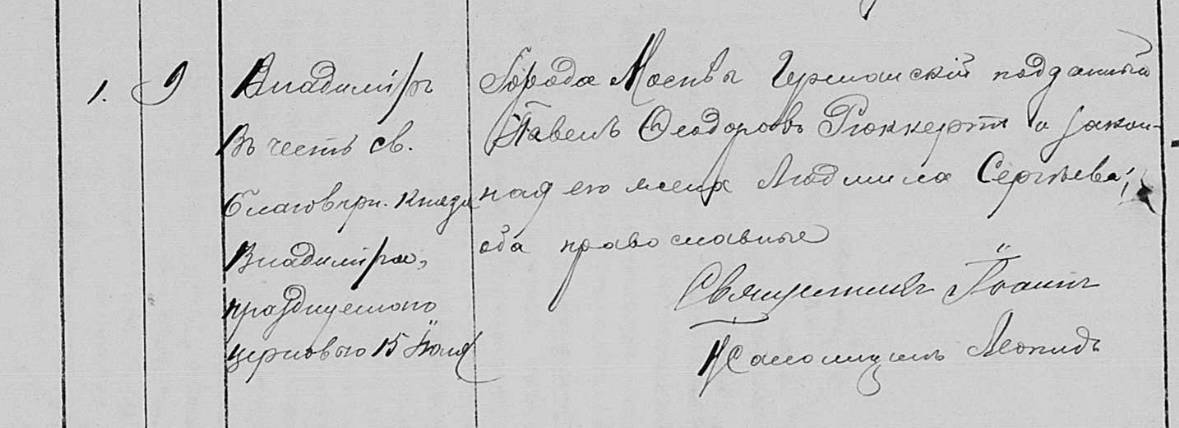 1. 9 Владимiръ
въ честь св.
благовѣрн. князя
Владимiра,
празднуемаго
церковью 15 Iюля
Города Москвы Германскiй подданный
Павелъ Ѳеодоровъ Рюккертъ и закон-
ная его жена Людмила Сергѣева;
оба православные
Священникъ Iоаннъ
Псаломщикъ Леонидъ